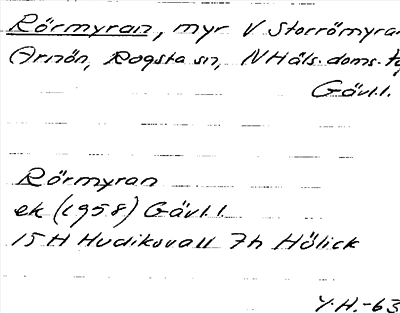 Rörmyran, myr V Storrömyran
Arnön, Rogsta sn, N Häls. doms.
Gävl.l.
Rörmyran
ek (1958) Gävl.l.
15 H Hudiksvall 7h Hölick
Y.H.-63